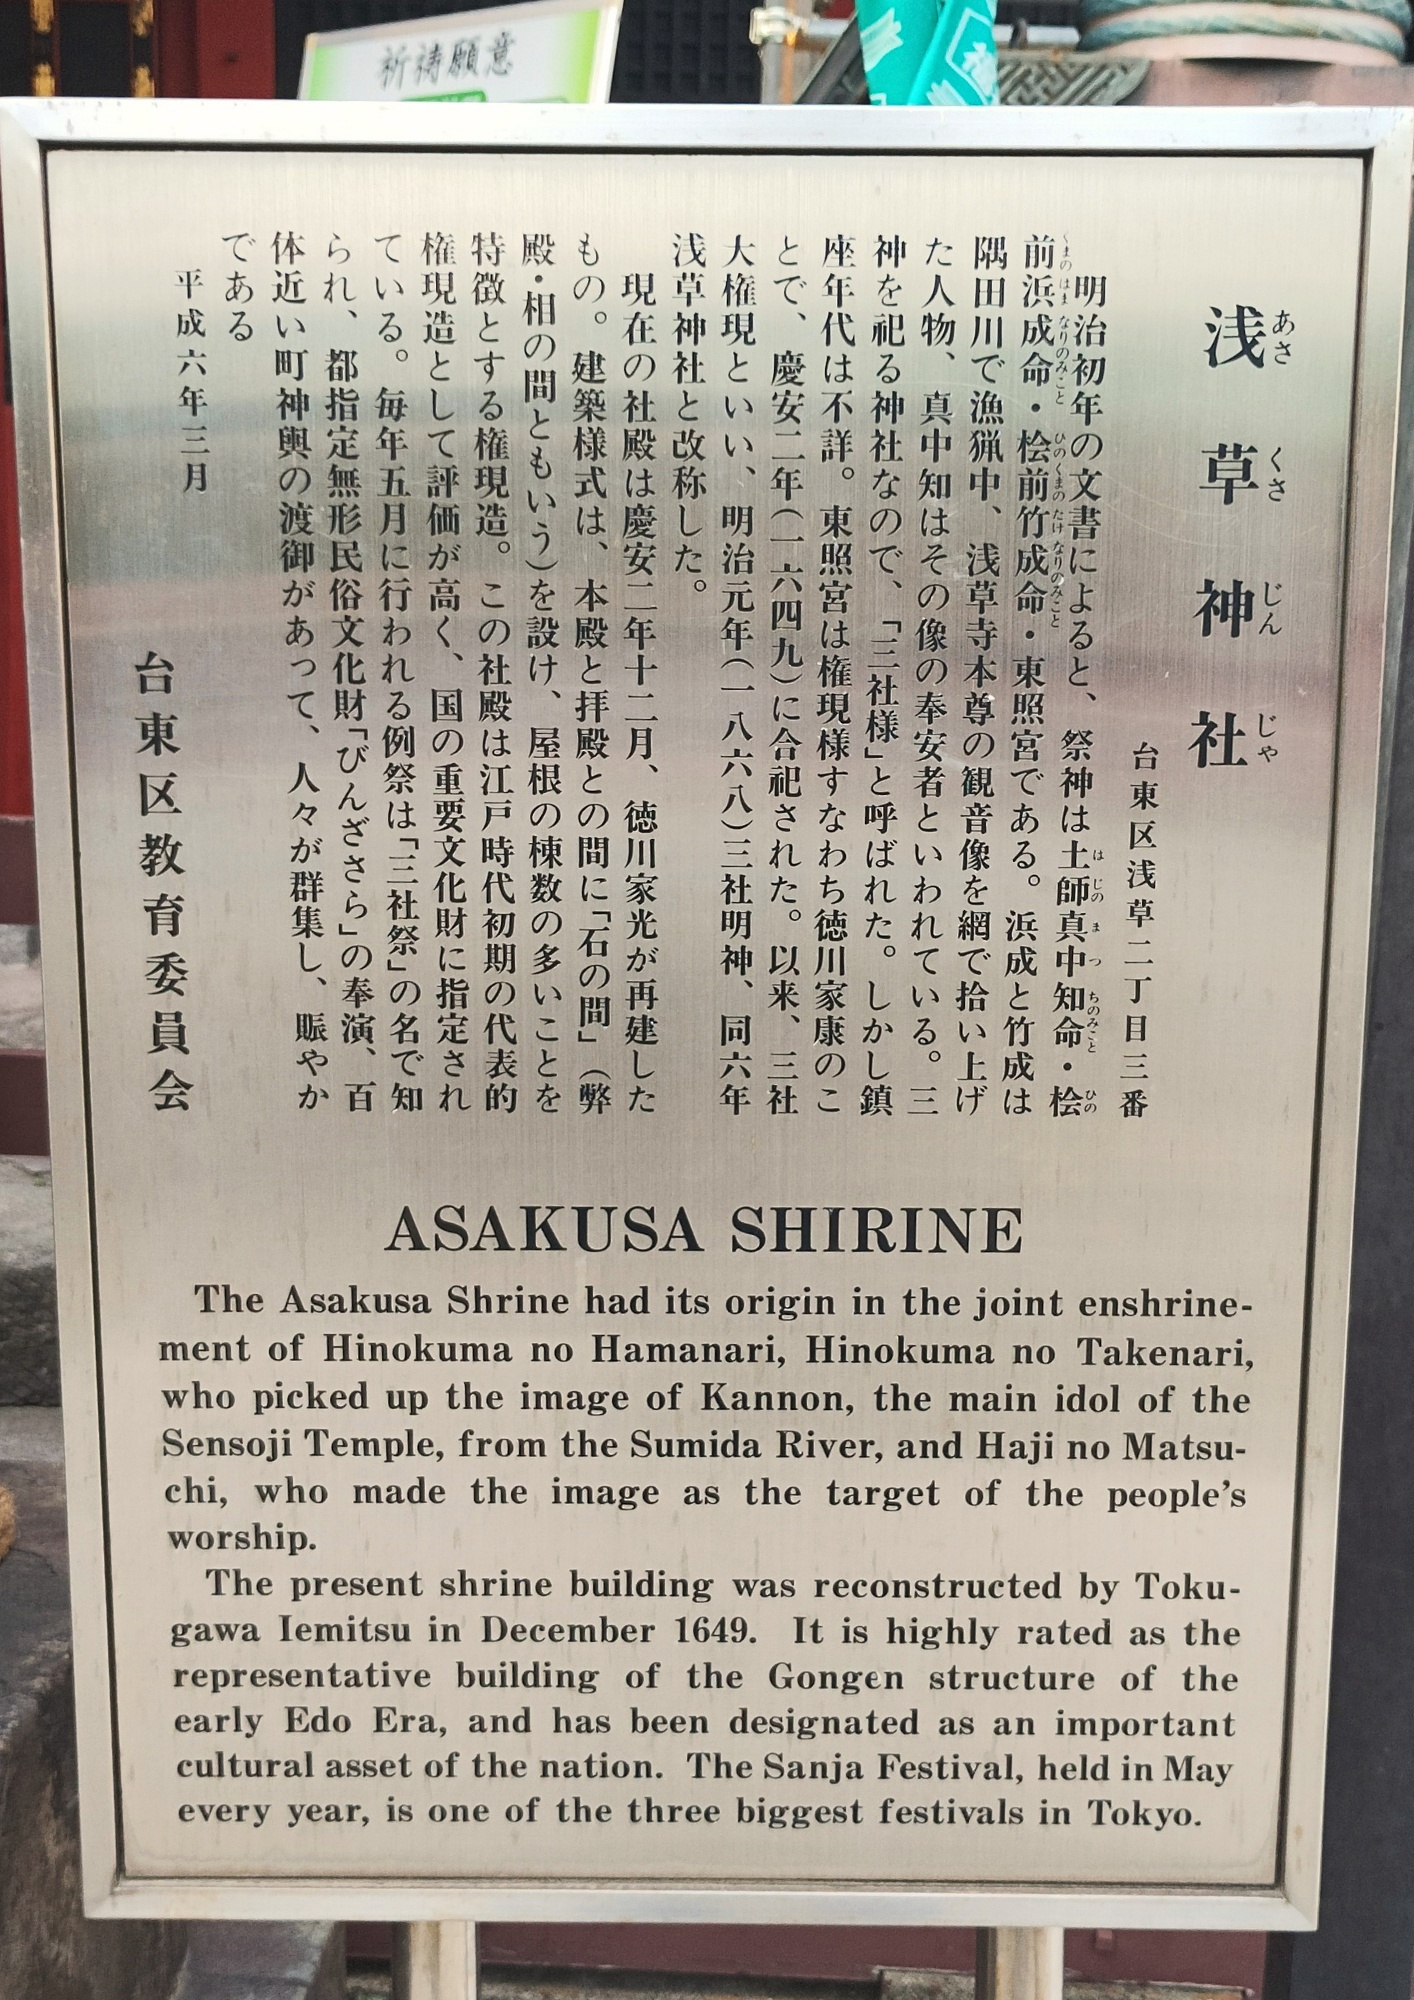 祈祷願意
浅草神社
あさ くさ じん じゃ
台東区浅草二丁目三番
明治初年の文書によると、祭神は土師真中知命・桧
はじの まつちのみこと ひの
前浜成命・桧前竹成命・東照宮である。浜成と竹成は
くまのはまなりのみこと ひのくまのたけなりのみこと
隅田川で漁猟中、浅草寺本尊の観音像を網で拾い上げ
た人物、真中知はその像の奉安者といわれている。三
神を祀る神社なので、「三社様」と呼ばれた。しかし鎮
座年代は不詳。東照宮は権現様すなわち徳川家康のこ
とで、慶安二年（一六四九）に合祀された。以来、三社
大権現といい、明治元年（一八六八）三社明神、同六年
浅草神社と改称した。
現在の社殿は慶安二年十二月、徳川家光が再建した
もの。建築様式は、本殿と拝殿との間に「石の間」（弊
殿・相の間ともいう）を設け、屋根の棟数の多いことを
特徴とする権現造。この社殿は江戸時代初期の代表的
権現造として評価が高く、国の重要文化財に指定され
ている。毎年五月に行われる例祭は「三社祭」の名で知
られ、都指定無形民俗文化財「びんざさら」の奉演、百
体近い町神輿の渡御があって、人々が群集し、賑やか
である
平成六年三月
台東区教育委員会
ASAKUSA SHIRINE
The Asakusa Shrine had its origin in the joint enshrine-
ment of Hinokuma no Hamanari, Hinokuma no Takenari,
who picked up the image of Kannon, the main idol of the
Sensoji Temple, from the Sumida River, and Haji no Matsu-
chi, who made the image as the target of the people's
worship.
The present shrine building was reconstructed by Toku-
gawa Iemitsu in December 1649. It is highly rated as the
representative building of the Gongen structure of the
early Edo Era, and has been designated as an important
cultural asset of the nation. The Sanja Festival, held in May
every year, is one of the three biggest festivals in Tokyo.